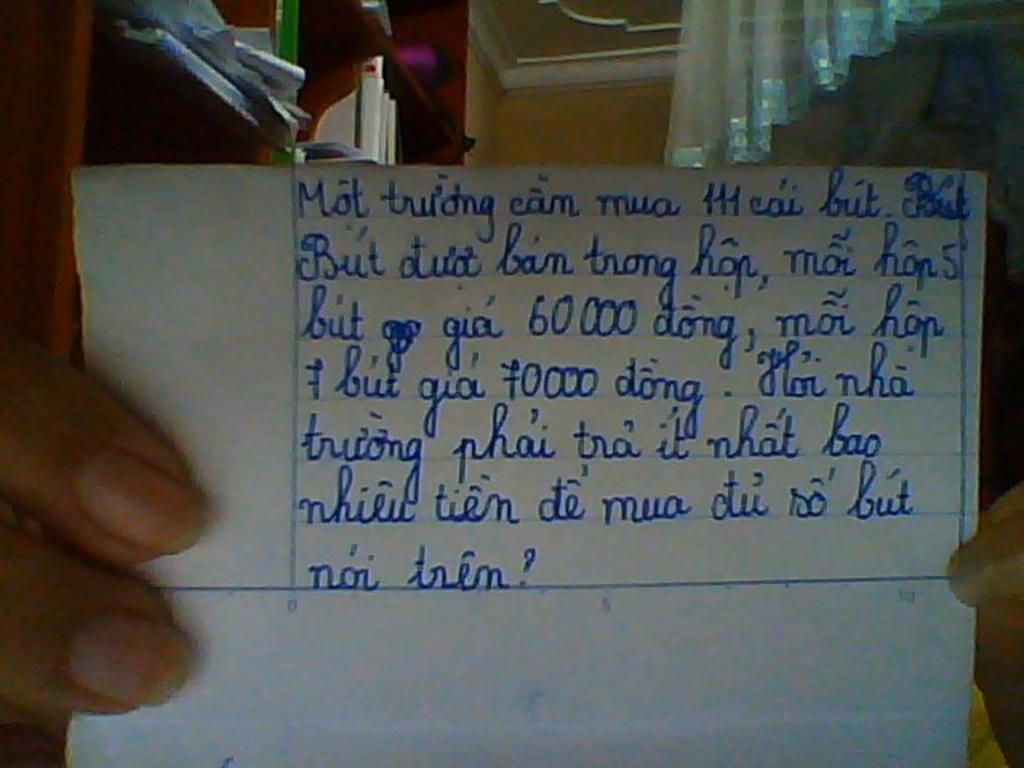 Một trường cần mua 111 cái bút. Bút
Bút được bán trong hộp, mỗi hộp 5
bút giá 60 000 đồng, mỗi hộp
7 bút giá 70000 đồng. Hỏi nhà
trường phải trả ít nhất bao
nhiêu tiền để mua đủ số bút
nói trên?
0 5 10